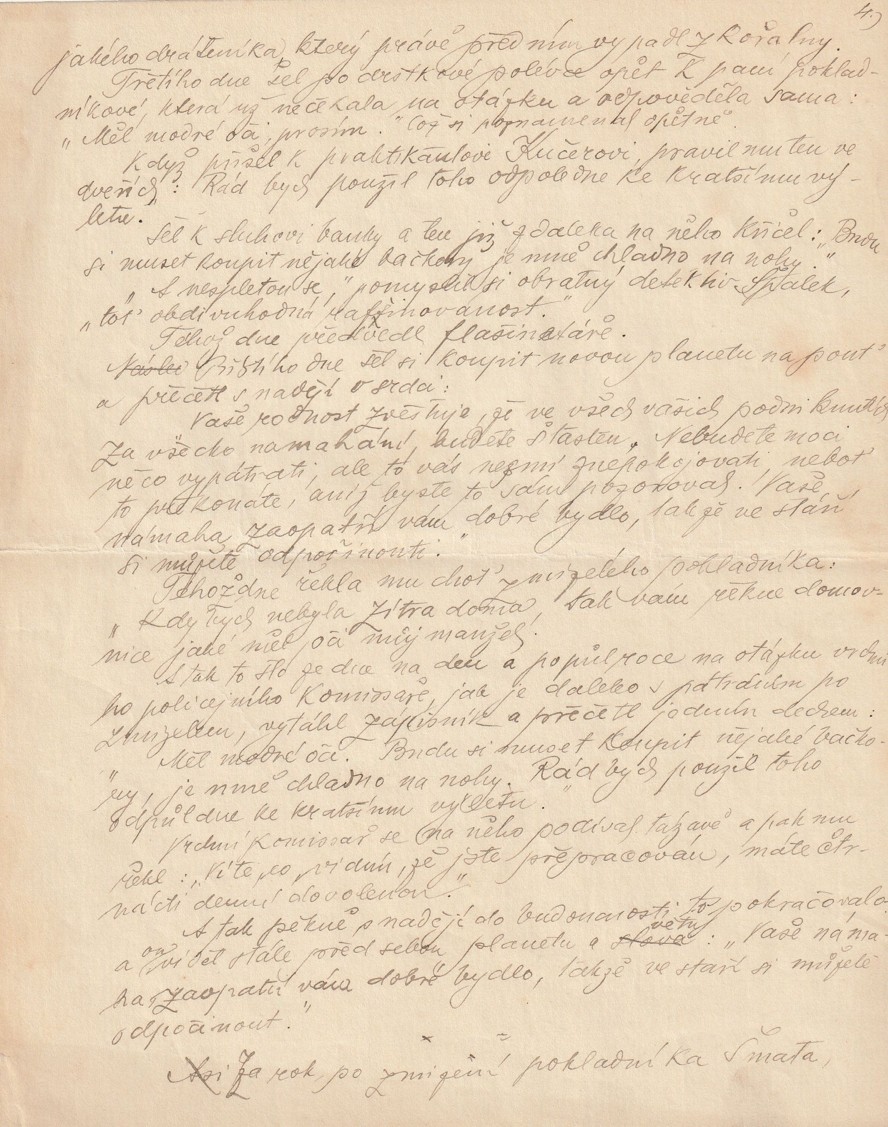 4.)
jakéhodráteníka, který právě před ním vypadl z kořalny.
Třetího dne šel po drštkové polévce opět k paní poklad-
níkové, která už nečekala na otázku a odpověděla sama:
"Měl modré oči, prosím." Což si poznamenal opětně.
Když přišel k praktikantovi Kučerovi, pravil mu ten ve
dveřích: Rád bych použil toho odpoledne ke kratšímu vý-
letu.
Šel k sluhovi banky a ten již zdaleka na něho křičel: "Budu
si muset koupit nějaké bačkory, je mně chladno na nohy."
"A nespletou se," pomyslil si obratný detektiv Špalek,
"toť obdivuhodná rafinovanost."
Téhož dne předvedl flašinetáře.
Násle Příštího dne šel si koupit novou planetu na pouť
a přečetl s nadějí v srdci:
Vaše rodnost zvěstuje, že ve všech vašich podniknutích
za všecko namahání, budete šťasten. Nebudete moci
něco vypátrati, ale to vás nesmí znepokojovati, neboť
to překonáte, aniž byste to sám pozoroval. Vaše
námaha zaopatří vám dobré bydlo, takže ve stáří
si můžete odpočinouti."
Téhoždne řekla mu choť zmizelého pokladníka:
"Kdybych nebyla zítra doma, tak vám řekne domov-
nice jaké měl oči můj manžel."
A tak to šlo ze dne na den a po půl roce na otázku vrchní
ho policejního komissaře, jak je daleko s pátráním po
zmizelém, vytáhl zápisník a přečetl jedním dechem:
"Měl modré oči. Budu si muset koupit nějaké bačko-
ry, je mně chladno na nohy. Rád bych použil toho
odpůldne ke kratšímu výletu."
Vrchní komissař se na něho podíval tázavě a pak mu
řekl: "Víte co, vidím, že jste přepracován, máte čtr-
nácti denní dovolenou."
A tak pěkně s nadějí do budoucnosti to pokračovalo
a on viděl stále před sebou planetu a slova větu: "Vaše náma-
ha zaopatří vám dobré bydlo, takže ve stáří si můžete
odpočinout."
Asi Za rok po zmizení pokladníka Šmata,